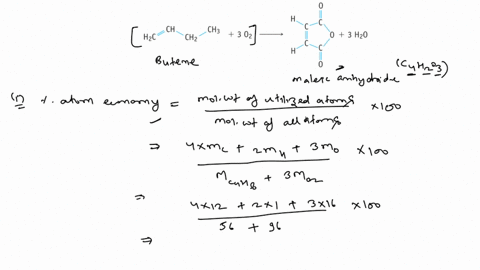 [ H₂C=CH-CH₂-CH₃ + 3 O₂ ] → H H O O O + 3 H₂O
Butene
maleic anhydride (C₄H₂O₃)
(1) % atom economy = mol.wt of utilized atoms / mol.wt of all atoms ×100
⇒ 4×Mc + 2MH + 3Mo / MC4H8 + 3MO2 ×100
⇒ 4×12 + 2×1 + 3×16 / 56 + 96 ×100
⇒